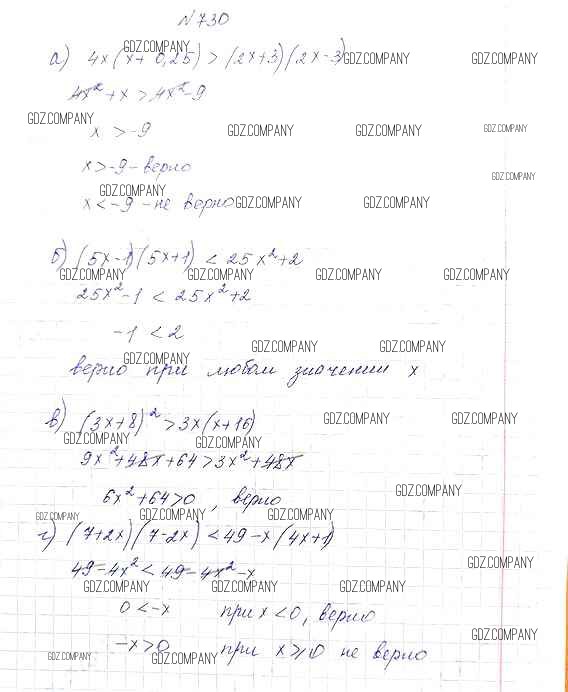 №730
а) 4x(x+0,25)>(2x+3)(2x-3)
GDZ.COMPANY GDZ.COMPANY GDZ.COMPANY
4x²+x>4x²-9
GDZ.COMPANY
x>-9
GDZ.COMPANY GDZ.COMPANY GDZ.COMPANY
x>-9-верно
GDZ.COMPANY
GDZ.COMPANY
x<-9-не верно
GDZ.COMPANY GDZ.COMPANY
б) (5x-1)(5x+1)<25x²+2
GDZ.COMPANY GDZ.COMPANY GDZ.COMPANY GDZ.COMPANY
25x²-1<25x²+2
-1<2
GDZ.COMPANY GDZ.COMPANY
GDZ.COMPANY
верно при любом значении x
в) (3x+8)²>3x(x+16)
GDZ.COMPANY GDZ.COMPANY
GDZ.COMPANY GDZ.COMPANY
9x²+48x+64>3x²+48x
GDZ.COMPANY
6x²+64>0, верно
GDZ.COMPANY GDZ.COMPANY GDZ.COMPANY
г) (7+2x)(7-2x)<49-x(4x+1)
GDZ.COMPANY
49-4x²<49-4x²-x
GDZ.COMPANY GDZ.COMPANY GDZ.COMPANY
0<-x при x<0, верно
GDZ.COMPANY
-x>0 при x⩾0 не верно
GDZ.COMPANY GDZ.COMPANY